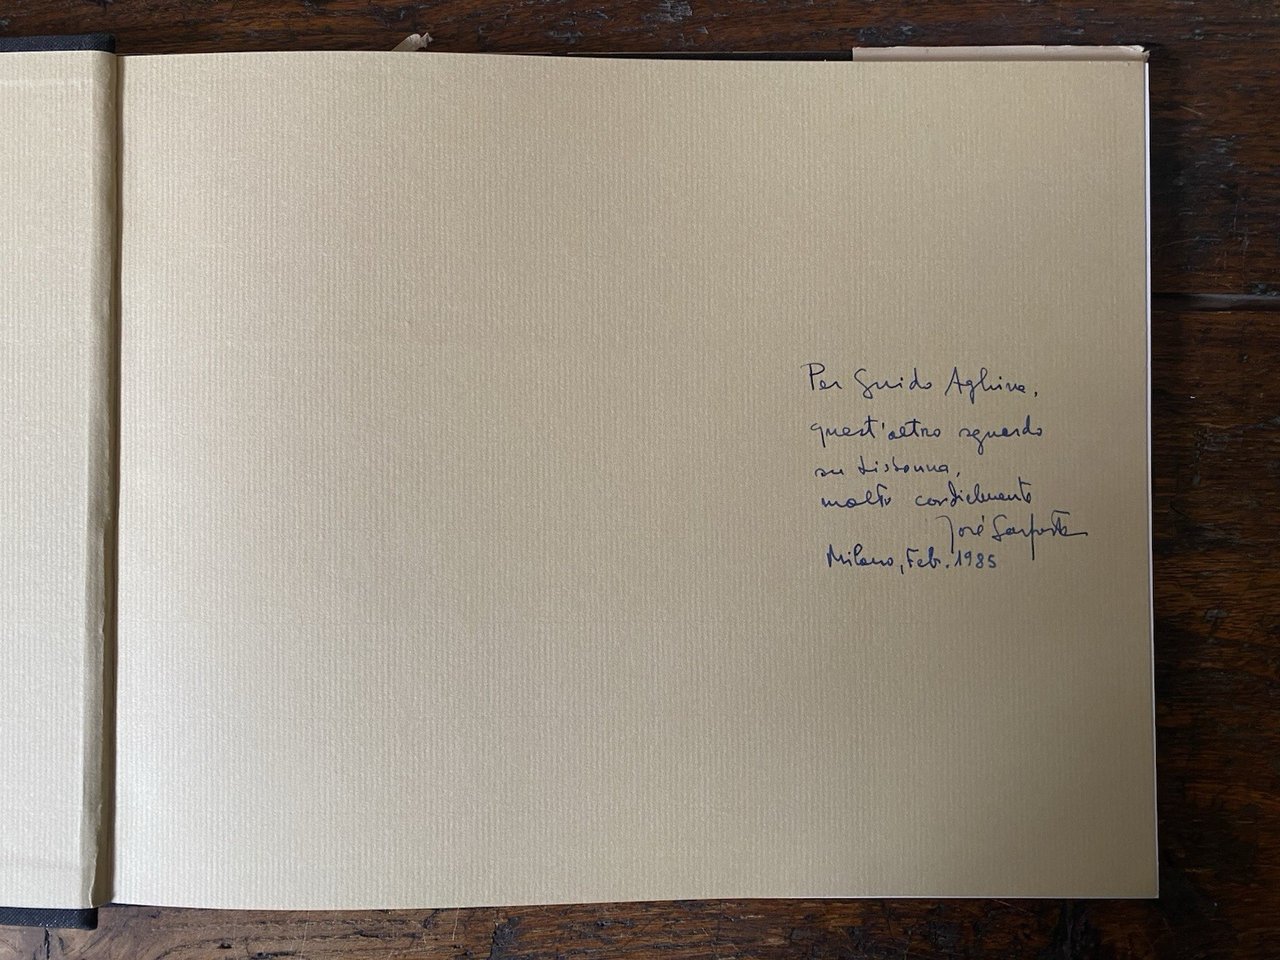 Per Guido Aghina,
quest'altro sguardo
su Lisbonna,
molto cordialmente
José
Milano, Feb. 1985